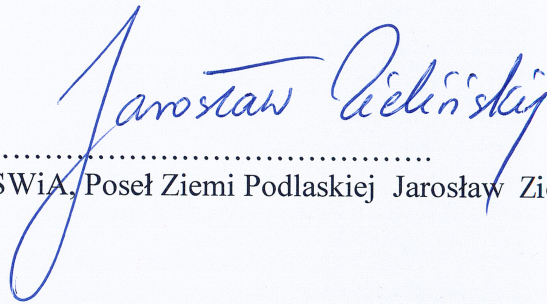 Jarosław Zieliński
SWiA, Poseł Ziemi Podlaskiej Jarosław Zie